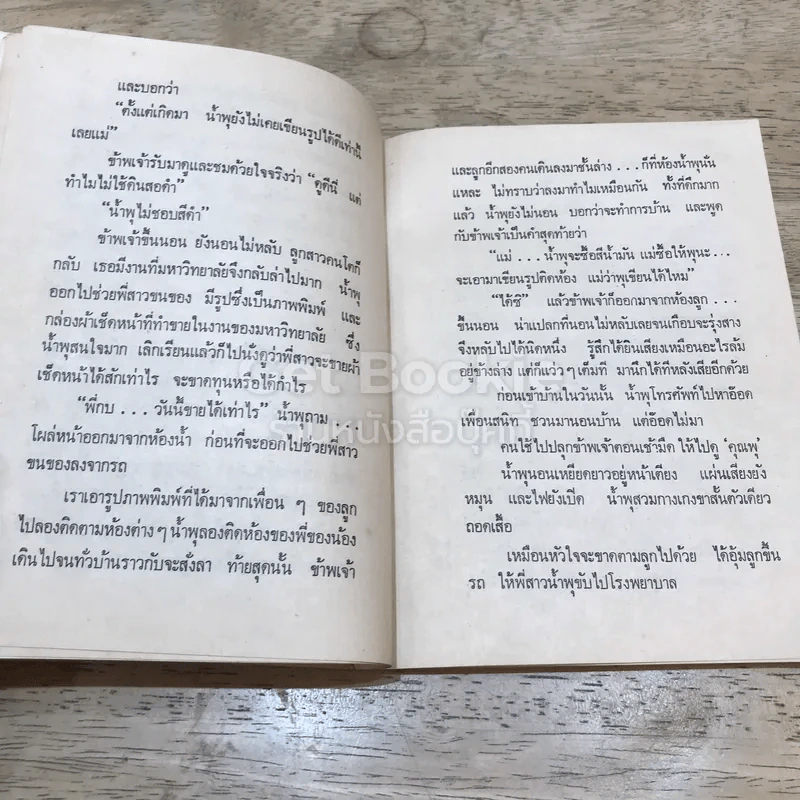 และบอกว่า
“ตั้งแต่เกิดมา น้ำพุยังไม่เคยเขียนรูปได้ดีเท่านี้
เลยแม่”
ข้าพเจ้ารับมาดูและชมด้วยใจจริงว่า “ดูดีนี่ แต่
ทำไมไม่ใช้ดินสอดำ”
“น้ำพุไม่ชอบสีดำ”
ข้าพเจ้าขึ้นนอน ยังนอนไม่หลับ ลูกสาวคนโตก็
กลับ เธอมีงานที่มหาวิทยาลัยจึงกลับล่าไปมาก น้ำพุ
ออกไปช่วยพี่สาวขนของ มีรูปซึ่งเป็นภาพพิมพ์ และ
กล่องผ้าเช็ดหน้าที่ทำขายในงานของมหาวิทยาลัย ซึ่ง
น้ำพุสนใจมาก เลิกเรียนแล้วก็ไปนั่งดูว่าพี่สาวจะขายผ้า
เช็ดหน้าได้สักเท่าไร จะขาดทุนหรือได้กำไร
“พี่กบ ... วันนี้ขายได้เท่าไร” น้ำพุถาม ...
โผล่หน้าออกมาจากห้องน้ำ ก่อนที่จะออกไปช่วยพี่สาว
ขนของลงจากรถ
เราเอารูปภาพพิมพ์ที่ได้มาจากเพื่อน ๆ ของลูก
ไปลองติดตามห้องต่าง ๆ น้ำพุลองติดห้องของพี่ของน้อง
เดินไปจนทั่วบ้านราวกับจะสั่งลา ท้ายสุดนั้น ข้าพเจ้า
และลูกอีกสองคนเดินลงมาชั้นล่าง ... ก็ที่ห้องน้ำพุนั่น
แหละ ไม่ทราบว่าลงมาทำไมเหมือนกัน ทั้งที่ดึกมาก
แล้ว น้ำพุยังไม่นอน บอกว่าจะทำการบ้าน และพูด
กับข้าพเจ้าเป็นคำสุดท้ายว่า
“แม่ ... น้ำพุจะซื้อสีน้ำมัน แม่ซื้อให้พุนะ ...
จะเอามาเขียนรูปติดห้อง แม่ว่าพุเขียนได้ไหม”
“ได้ซิ” แล้วข้าพเจ้าก็ออกมาจากห้องลูก ...
ขึ้นนอน น่าแปลกที่นอนไม่หลับเลยจนเกือบจะรุ่งสาง
จึงหลับไปได้นิดหนึ่ง รู้สึกได้ยินเสียงเหมือนอะไรล้ม
อยู่ข้างล่าง แต่ก็แว่ว ๆ เต็มที มานึกได้ทีหลังเสียอีกด้วย
ก่อนเข้าบ้านในวันนั้น น้ำพุโทรศัพท์ไปหาอ๊อด
เพื่อนสนิท ชวนมานอนบ้าน แต่อ๊อดไม่มา
คนใช้ไปปลุกข้าพเจ้าตอนเช้ามืด ให้ไปดู ‘คุณพุ’
น้ำพุนอนเหยียดยาวอยู่หน้าเตียง แผ่นเสียงยัง
หมุน และไฟยังเปิด น้ำพุสวมกางเกงขาสั้นตัวเดียว
ถอดเสื้อ
เหมือนหัวใจจะขาดตามลูกไปด้วย ได้อุ้มลูกขึ้น
รถ ให้พี่สาวน้ำพุขับไปโรงพยาบาล